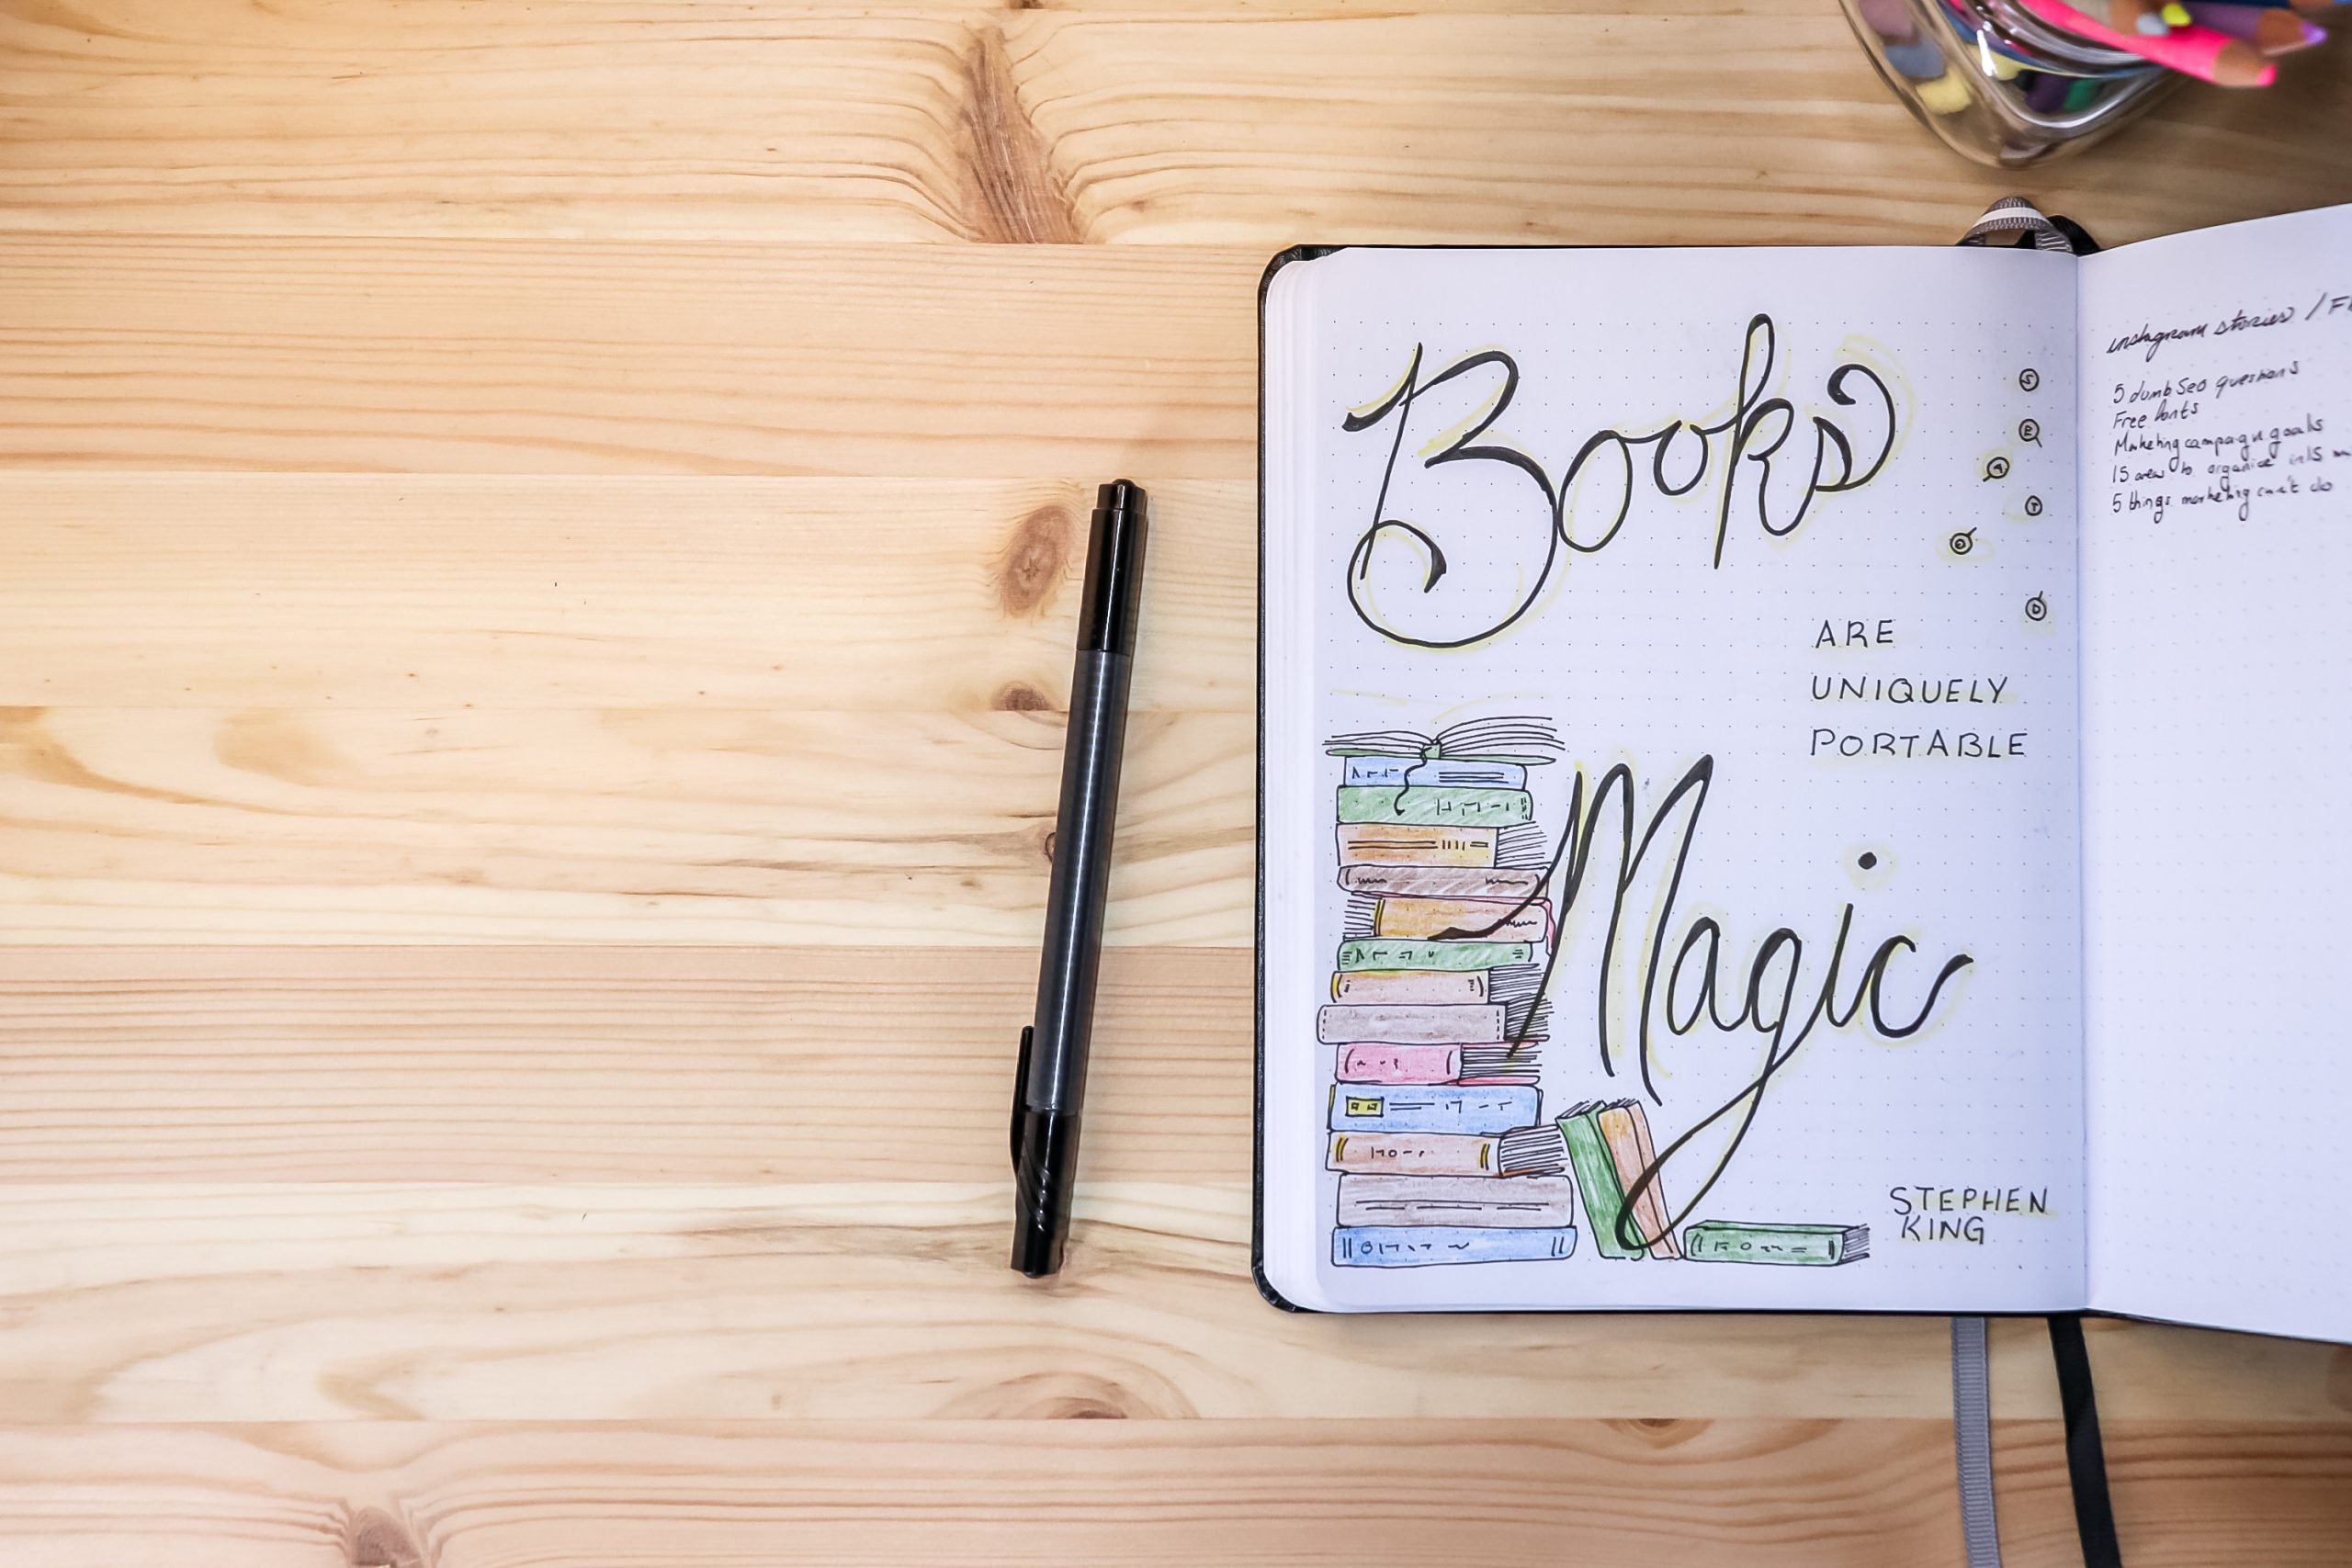 Books
ARE
UNIQUELY
PORTABLE
Magic
STEPHEN
KING
S
R
A
T
D
instagram stories /
5 dumb Seo questions
Free fonts
Marketing campaign goals
15 to organize
5 things marketing can't do